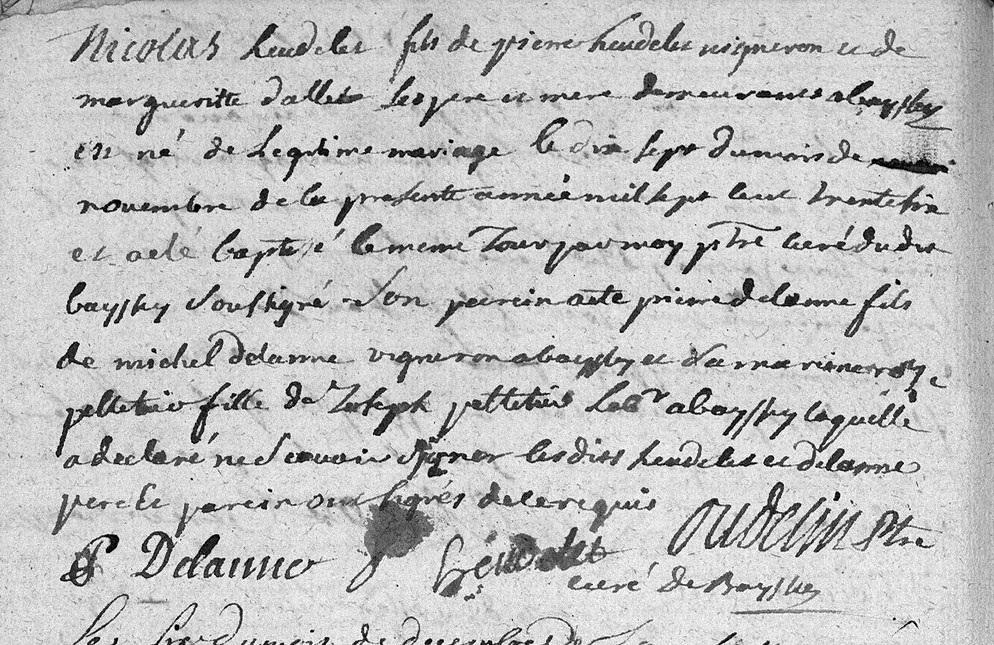 Nicolas heudelet fils de pierre heudelet vigneron et de
margueritte dallet ses pere et mere demeurants a bayssey
est né de legitime mariage le dix sept du mois de
novembre de la presente année mil sept cent trente six
et a eté baptisé le meme Jour par moy ptre curé dudit
bayssey soussigné Son parein a eté pierre delanne fils
de michel delanne vigneron a bayssey et sa mareine
pelletier fille de Joseph pelletier Labr a bayssey laquelle
a declaré ne Scavoir Signer lesdits heudelet et delanne
pere et parein ont signés de ce requis
oudelin ptre
P Delanne heudelet
curé de Bayssey
du mois de decembre